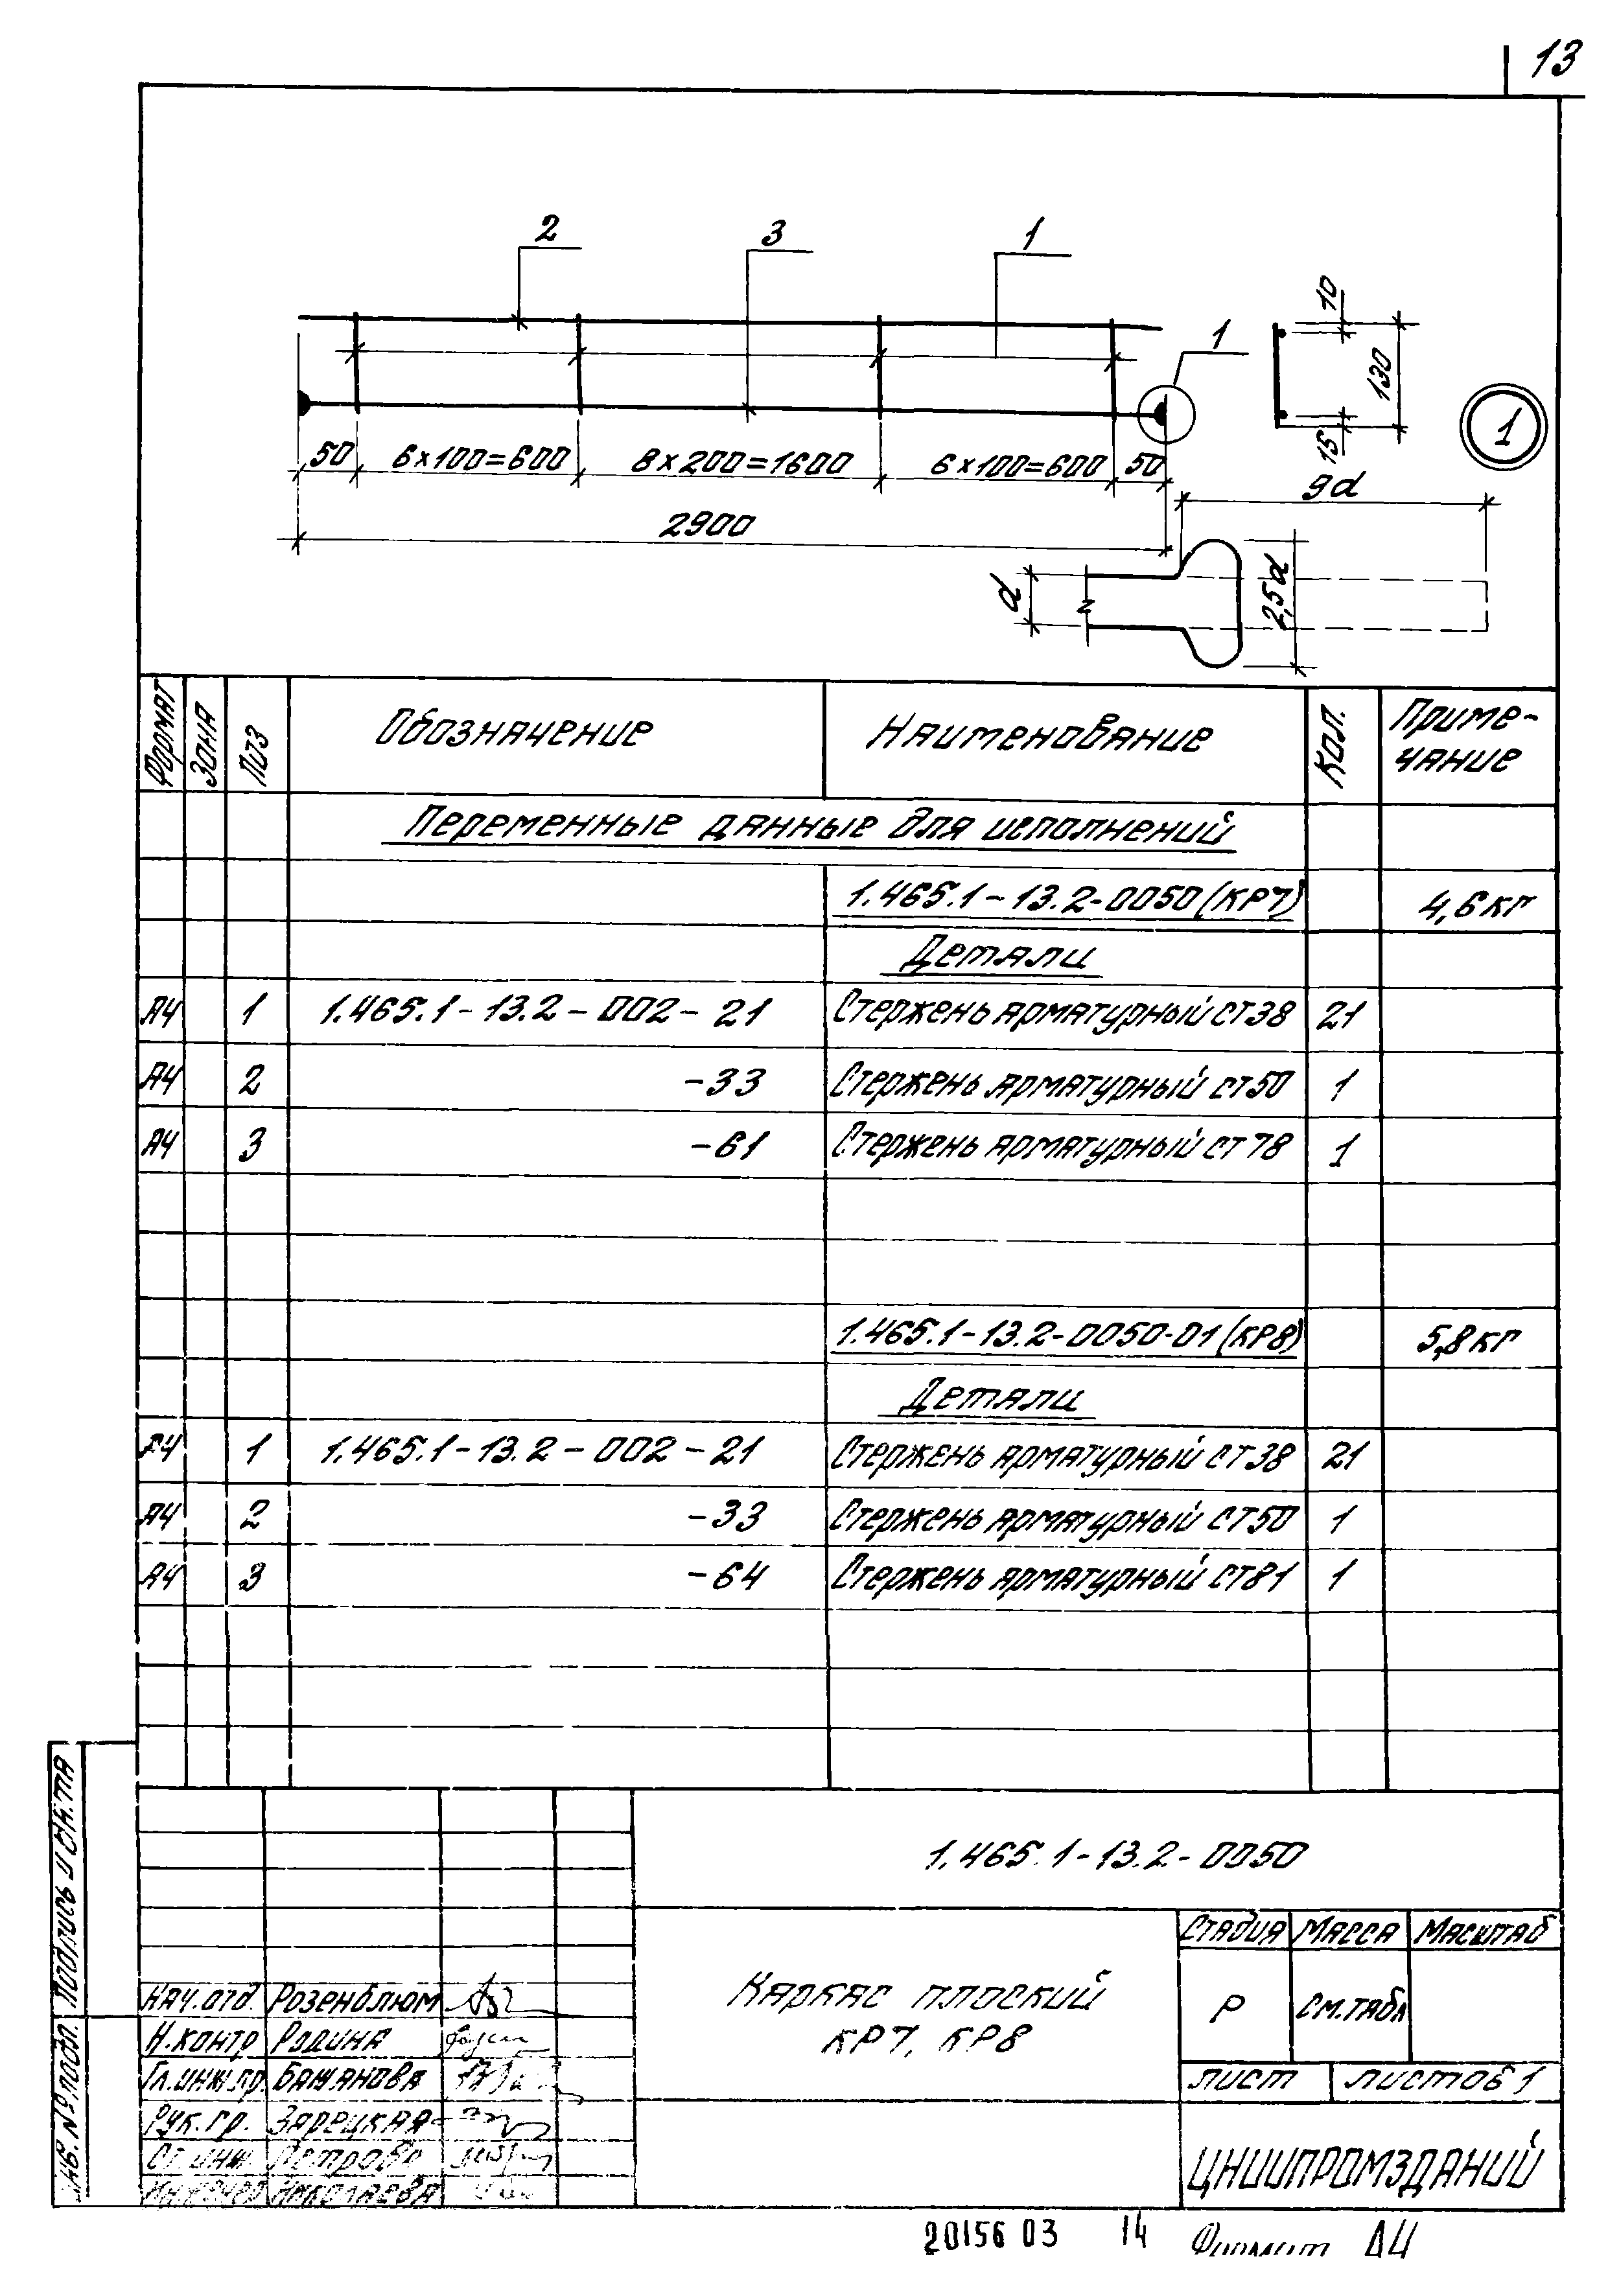 13
2
3
1
1
50
6×100=600
8×200=1600
6×100=600
50
2900
10
130
15
1
9d
d
2,5d
Формат
Зона
Поз
Обозначение
Наименование
Кол.
Приме-
чание
Переменные данные для исполнений
1.465.1-13.2-0050 (КР7)
4,6 кг
Детали
А4 1 1.465.1-13.2-002-21 Стержень арматурный СТ38 21
А4 2 -33 Стержень арматурный СТ50 1
А4 3 -61 Стержень арматурный СТ78 1
1.465.1-13.2-0050-01 (КР8)
5,8 кг
Детали
А4 1 1.465.1-13.2-002-21 Стержень арматурный СТ38 21
А4 2 -33 Стержень арматурный СТ50 1
А4 3 -64 Стержень арматурный СТ81 1
Подпись и дата
Инв. № подл.
1.465.1-13.2-0050
Стадия Масса Масштаб
Р см.табл
Каркас плоский
КР7, КР8
лист листов 1
ЦНИИПРОМЗДАНИЙ
Нач.отд. Розенблюм
Н.контр Родина
Гл.инж.пр. Бажанова
Рук.гр. Зарецкая
Ст.инж. Петрова
Инженер Николаева
20156 03 14 Формат А4